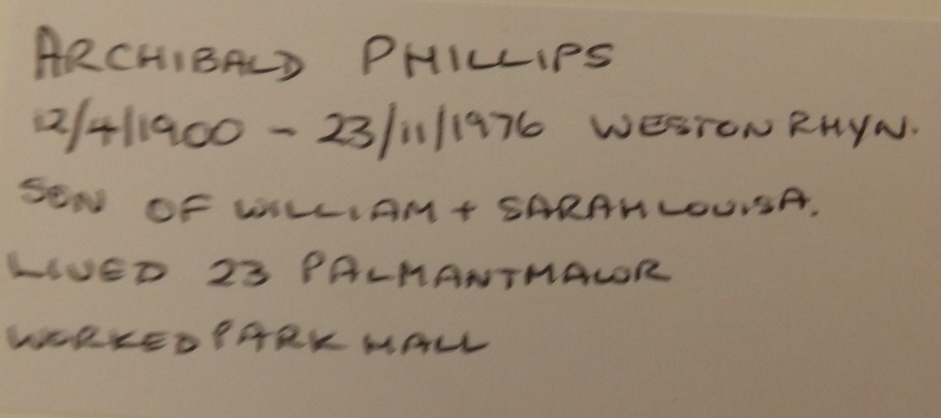 ARCHIBALD PHILLIPS
12/4/1900 - 23/11/1976 WESTON RHYN.
SON OF WILLIAM + SARAH LOUISA.
LIVED 23 PALMANTMAWR
WORKED PARK HALL